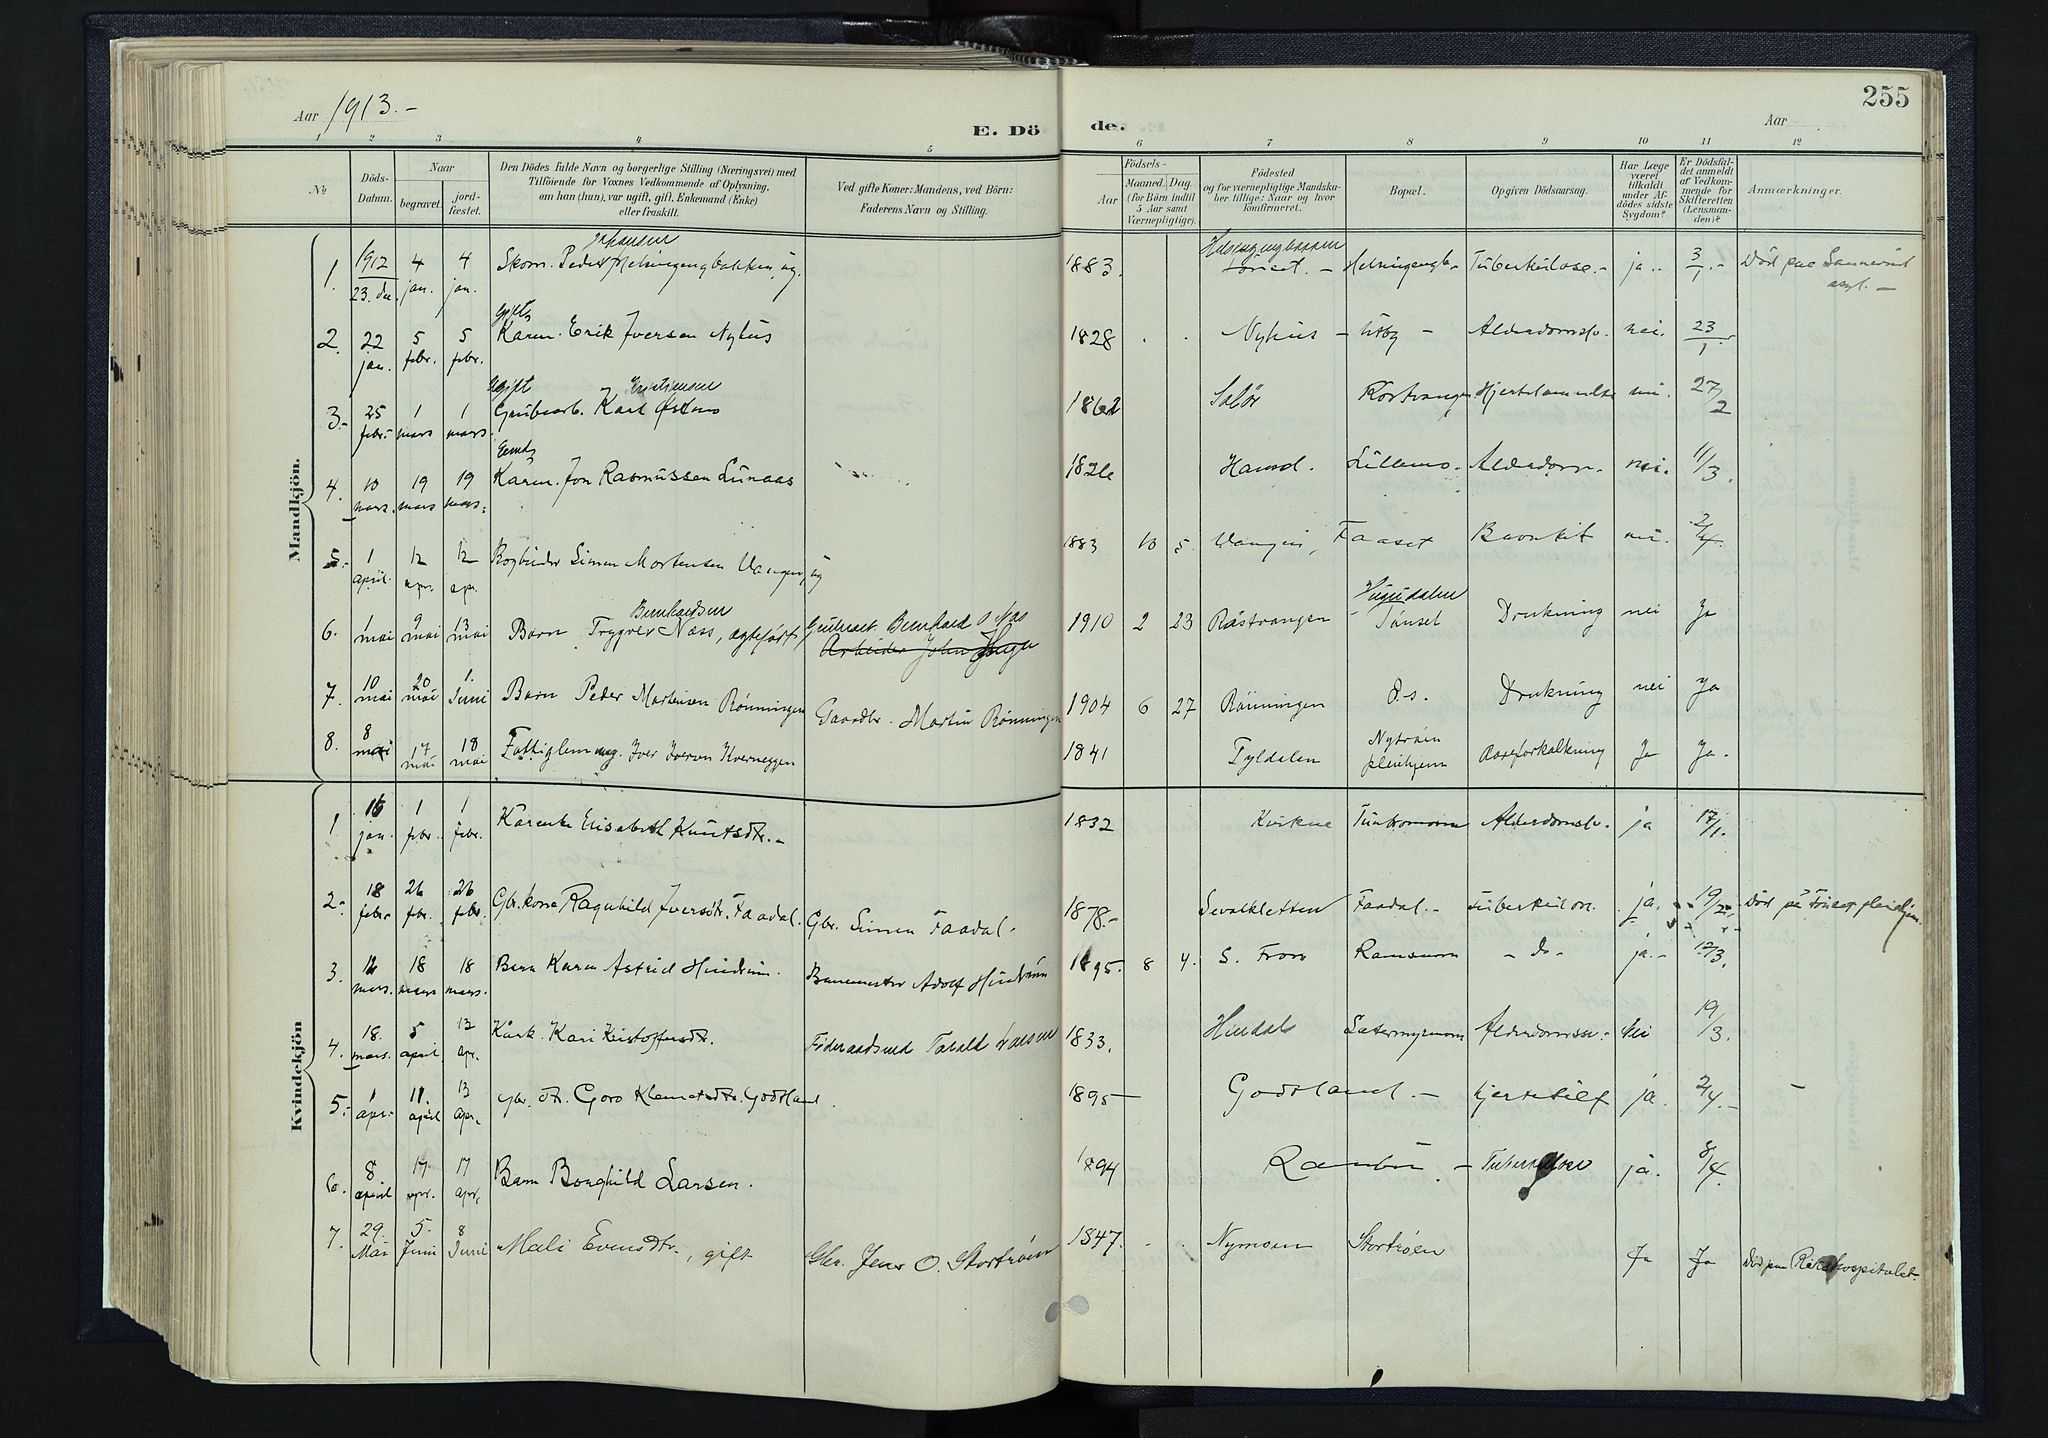 Aar 1913.-
E. Dö de.
Aar
255
1 2 3 4 5 6 7 8 9 10 11 12
№
Döds-Datum.
Naar
begravet. jord-fæstet.
Den Dödes fulde Navn og borgerlige Stilling (Næringsvei) med
Tilföiende for Voxnes Vedkommende af Oplysning,
om han (hun), var ugift, gift, Enkemand (Enke)
eller fraskilt.
Ved gifte Koner: Mandens, ved Börn:
Faderens Navn og Stilling.
Födsels-
Aar
Maaned. Dag.
(for Börn indtil
5 Aar samt
Værnepligtige).
Födested
og for værnepligtige Mandska-
ber tillige: Naar og hvor
konfirmeret.
Bopæl.
Opgiven Dödsaarsag.
Har Læge
været
tilkaldt
under Af-
dödes sidste
Sygdom?
Er Dödsfal-
det anmeldt
af Vedkom-
mende for
Skifteretten
(Lensman-
den)?
Anmærkninger.
Mandkjön.
Johansen
1. 1912 23. dec. 4 jan. 4 jan. Skom. Peder Helsingengbakken, ug. 1883. Tönset. - Helsingengb- Tuberkulose.- ja.. 3/1.- Död paa Sannerud asyl.-
Gift
2. 22 jan. 5 febr. 5 febr. Kaarm. Erik Iversen Nyhus 1828 . . Nyhus - Utby - Alderdomssv. nei. 23/1.
Ugift Kristiansen
3.- 25 febr.- 1 mars 1 mars. Grubearb. Karl Østmo 1862 Solör Röstvangen Hjertelammelse nei. 27/2
Enkem.
4. 10 mars. 19 mars 19 mars. Kaarm. Jon Rasmussen Lunaas 1826 Hansd. Lillemo. Alderdom-. nei. 11/3.
5.- 1 april. 12 apr. 12 apr. Bogbinder Simen Mortensen Vangen, ug 1883 10 5. Vangen, Faaset Bronkit nei. 2/4.
Bernhardsen
6. 1 mai 9 mai 13 mai Barn Trygve Næss, ægtefödt, Grubearb. Bernhard O Næs 1910 2 23 Röstvangen Tönset Drukning nei Ja
Arbeider John Hage
7. 10 mai 20 mai 1. Juni Barn Peder Martinsen Rönningen Gaardbr. Martin Rönningen 1904 6 27 Rönningen d.s. Drukning nei Ja
8. 8 mai 17 mai 18 mai Fattiglem ug. Iver Iversen Kverneggen 1841 Tyldalen Nytröen pleiehjem Aareforkalkning Ja Ja.
Kvindekjön
1 15 jan. 1 febr. 1 febr. Kaarenke Elisabeth Knutsdtr.- 1832 Kvikne Tuntromoen Alderdomssv. ja 17/1.
2.- 18 febr. 26 febr. 26 febr. Gbr.kone Ragnhild Iversdtr. Faadal. Gbr. Simen Faadal. 1878.- Sevalkletten Faadal.- Tuberkulose. ja. 19/2.- Död på Tönset pleiehjem.
3. 12 mars. 18 mars 18 mars. Barn Karen Astrid Hindrum. Banemester Adolf Hindrum 1895. 8 4. S. Fron Ramsmoen - do - ja.- 12/3.
4. 18. mars. 5 april 13 apr. Kårk. Kari Kristoffersdtr. Föderaadsmd. Tarald Larsen 1833. Hindals Sætermyrmoen Alderdomssv. Nei 19/3.
5.- 1 apr.- 11. april 13 apr. Gbr. dtr. Goro Klemetsdtr. Godtland. 1895 - Godtland. - hjertefeil ja. 2/4.- -
6. 8 april 17 apr. 17 apr. Barn Borghild Larsen. 1894 Rambu. - Tuberkulose ja. 8/4.
7. 29. Mai 5. Juni 8 Juni Mali Evensdtr., gift Gbr. Jens O. Stortröen 1847. . . Nymoen Stortröen Ja Ja Död paa Rikshospitalet.